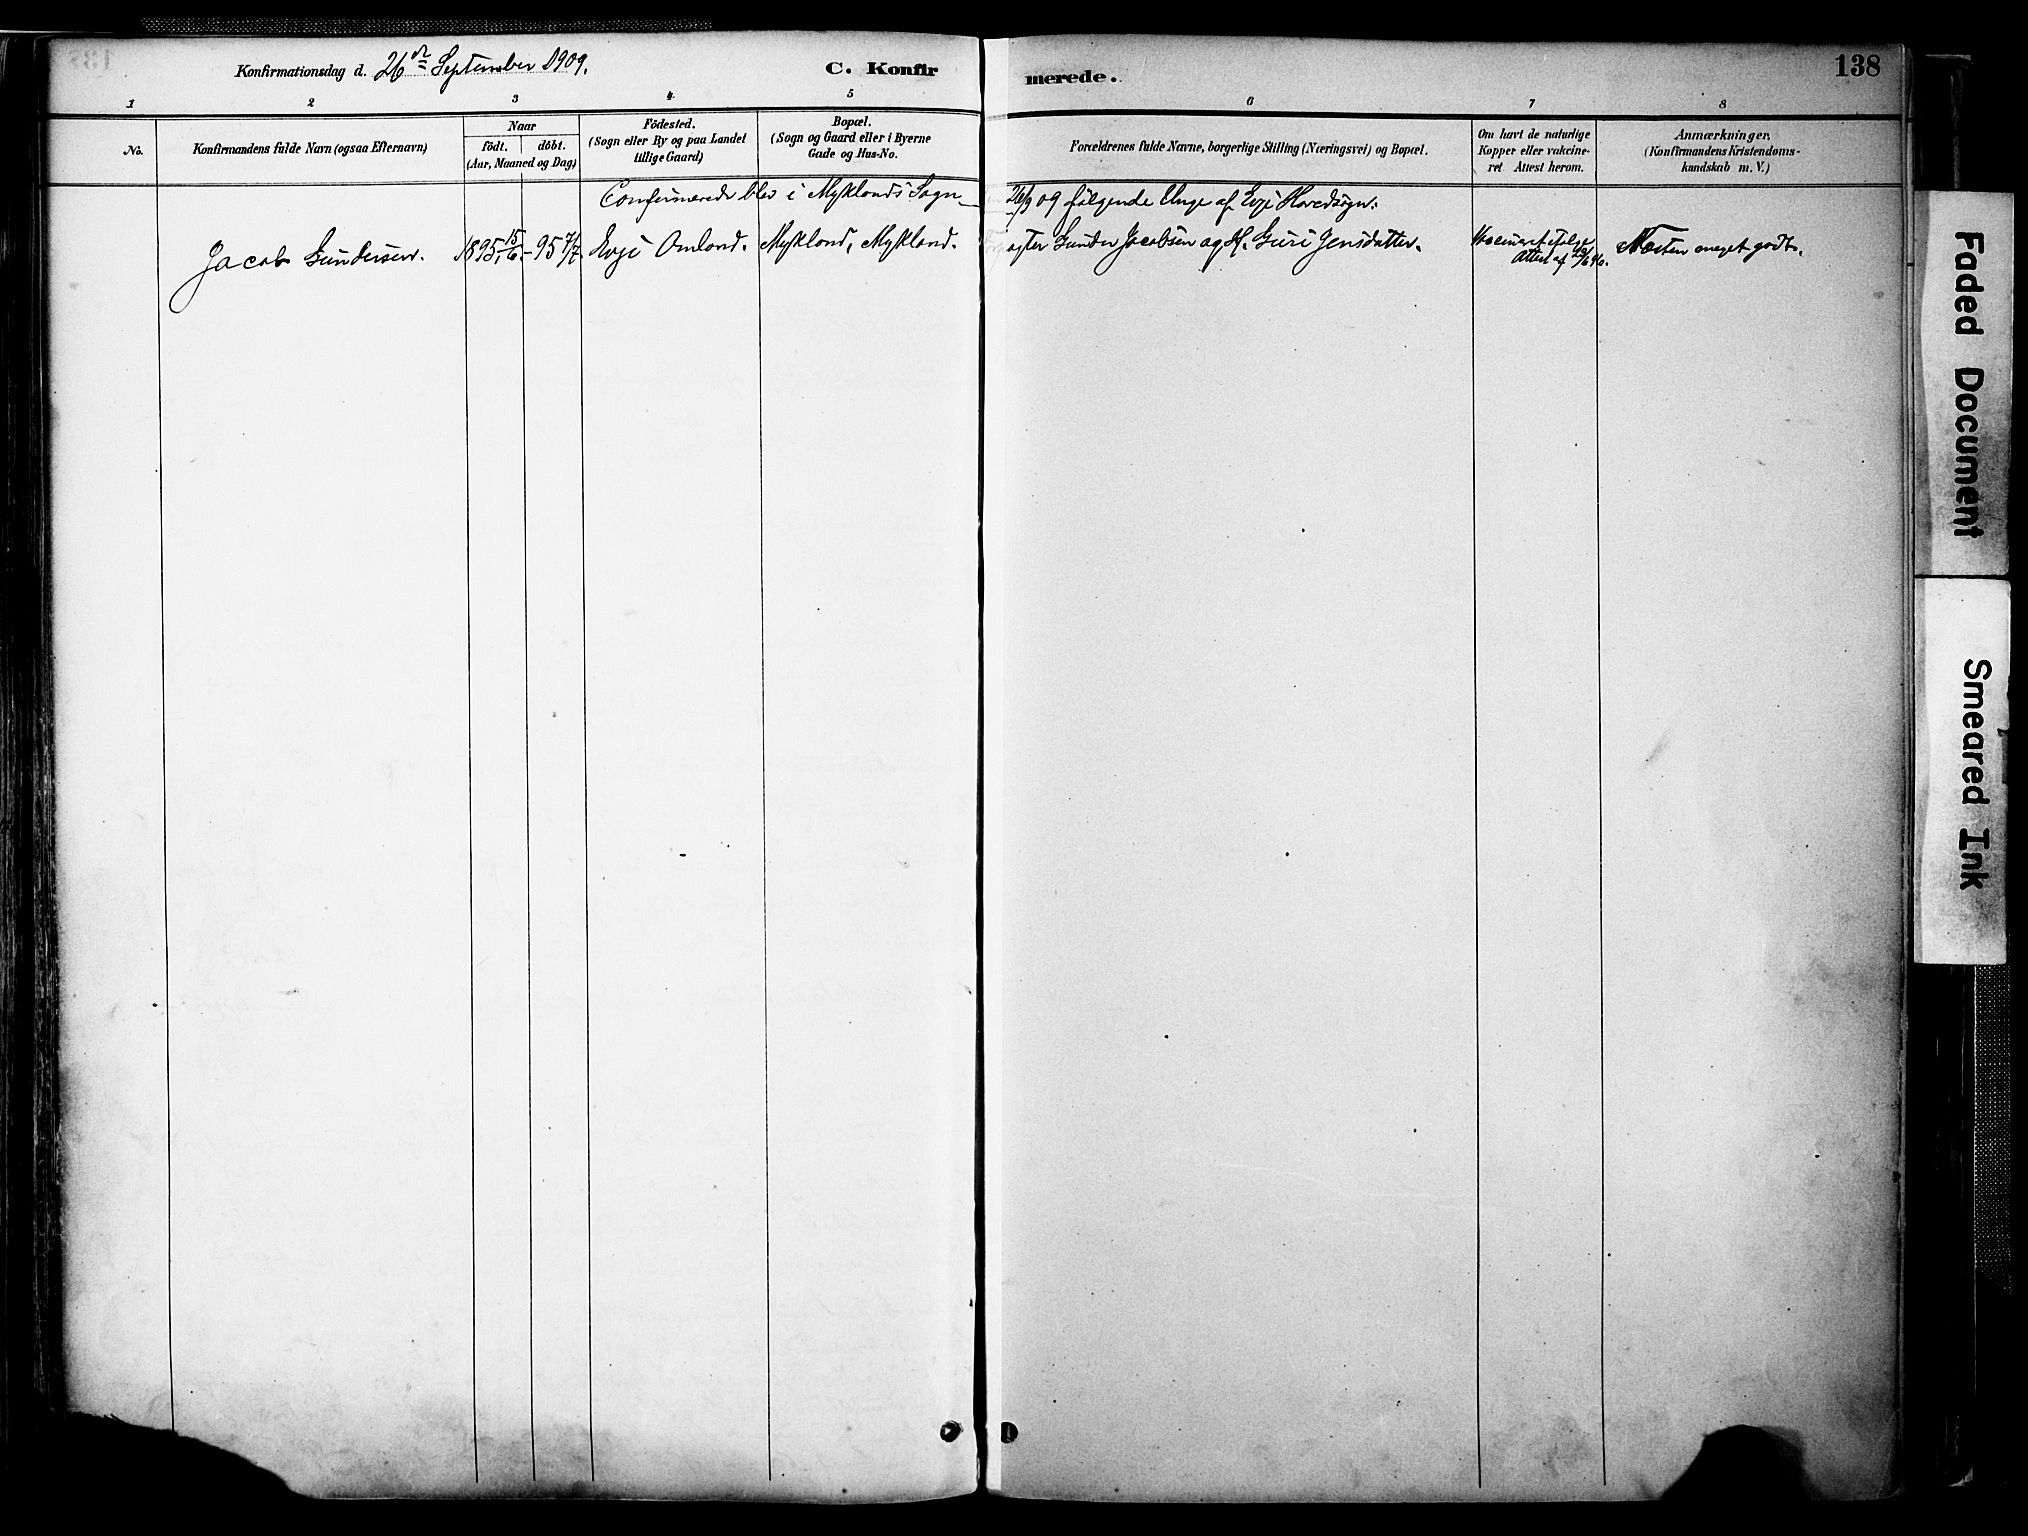 Konfirmationsdag d. 26de September 1909.
C. Konfirmerede.
138
1 2 3 4 5 6 7 8
No.
Konfirmandens fulde Navn (ogsaa Efternavn)
Naar
födt. döbt.
(Aar, Maaned og Dag)
Födested.
(Sogn eller By og paa Landet
tillige Gaard)
Bopæl.
(Sogn og Gaard eller i Byerne
Gade og Hus-No.
Forældrenes fulde Navne, borgerlige Stilling (Næringsvei) og Bopæl.
Om havt de naturlige
Kopper eller vakcine-
ret Attest herom.
Anmærkninger.
(Konfirmandens Kristendoms-
kundskab m. V.)
Confirmerede blev i Myklands Sogn 26/9 09 følgende Unge af Evje Hovedsogn:
Jacob Gundersen. 1895, 15/6. - 95 7/7 Evje Omland. Mykland, Mykland. Gunder Jacobsen og H. Guri Jensdatter. Vaccineret ifølge Næsten meget godt.
Attest af
Faded Document
Smeared Ink